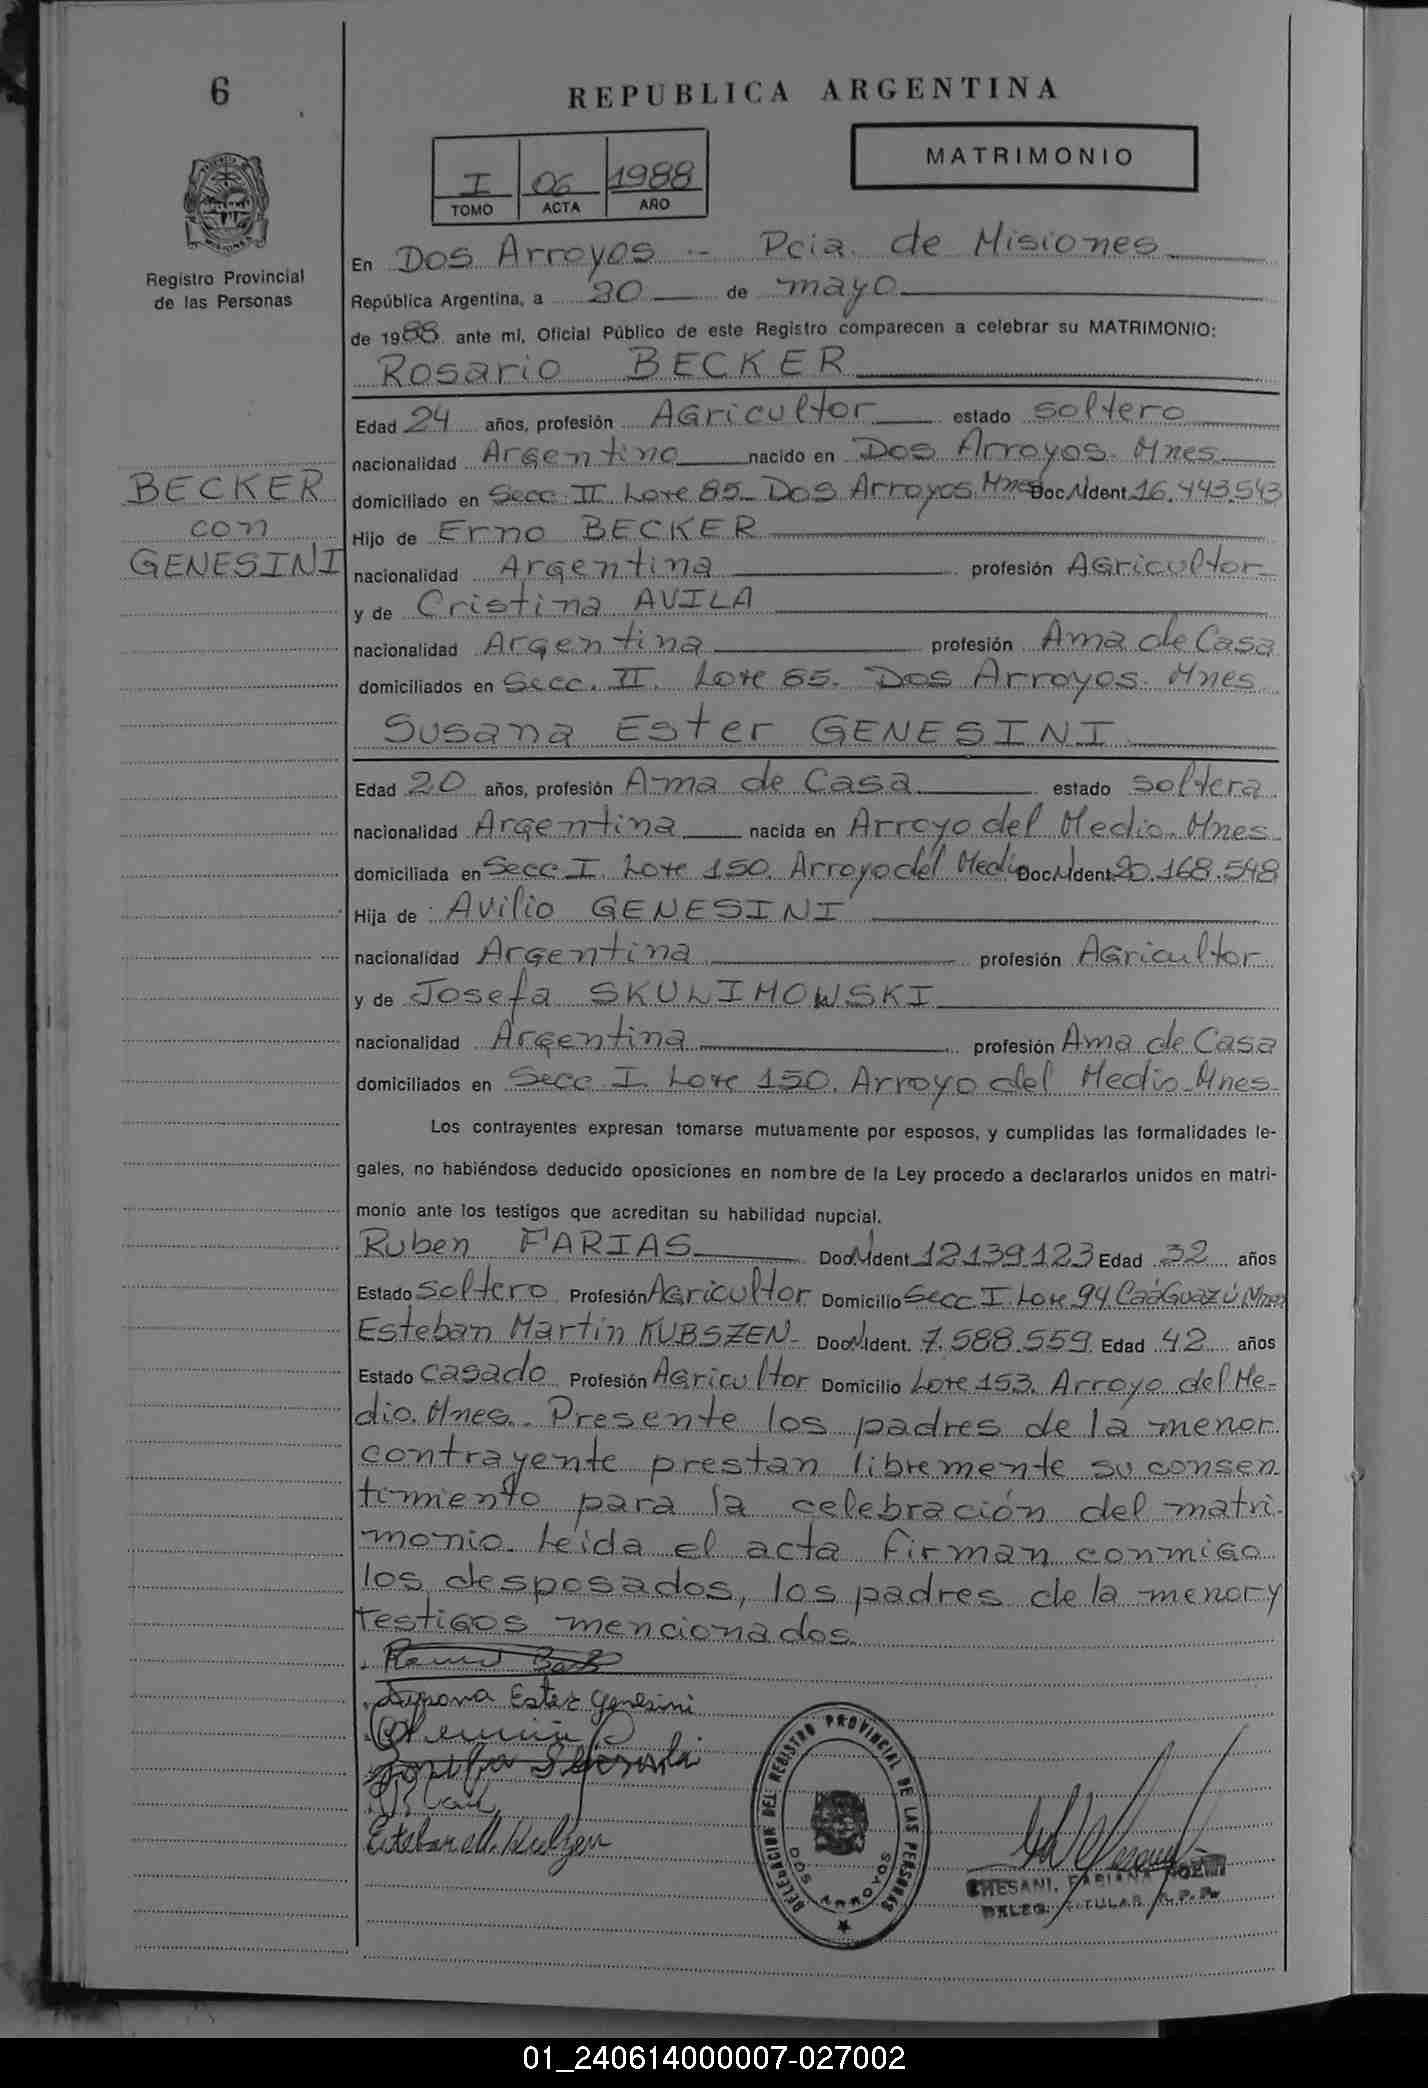 6
REPUBLICA ARGENTINA
MATRIMONIO
I 06 1988
TOMO ACTA AÑO
Registro Provincial
de las Personas
En Dos Arroyos -- Pcia. de Misiones
República Argentina, a 20 de mayo
de 1988 ante mí, Oficial Público de este Registro comparecen a celebrar su MATRIMONIO:
Rosario BECKER
Edad 24 años, profesión Agricultor estado soltero
nacionalidad Argentino nacido en Dos Arroyos. Mnes
BECKER
con
GENESINI
domiciliado en Secc. II. Lote 85. Dos Arroyos. Mnes Doc. N Ident. 16.443.543
Hijo de Erno BECKER
nacionalidad Argentina profesión Agricultor
y de Cristina AVILA
nacionalidad Argentina profesión Ama de Casa
domiciliados en Secc. II. Lote 85. Dos Arroyos. Mnes
Susana Ester GENESINI
Edad 20 años, profesión Ama de Casa estado soltera
nacionalidad Argentina nacida en Arroyo del Medio. Mnes
domiciliada en Secc I. Lote 150. Arroyo del Medio Doc. N Ident. 20.168.548
Hija de Avilio GENESINI
nacionalidad Argentina profesión Agricultor
y de Josefa SKULIMOWSKI
nacionalidad Argentina profesión Ama de Casa
domiciliados en Secc I. Lote 150. Arroyo del Medio. Mnes
Los contrayentes expresan tomarse mutuamente por esposos, y cumplidas las formalidades le-
gales, no habiéndose deducido oposiciones en nombre de la Ley procedo a declararlos unidos en matri-
monio ante los testigos que acreditan su habilidad nupcial.
Ruben FARIAS Doc. N Ident 12139.123 Edad 32 años
Estado soltero Profesión Agricultor Domicilio Secc I. Lote 94 CaáGuazú Mnes
Esteban Martin KUBSZEN- Doc. N Ident. 7.588.559 Edad 42 años
Estado casado Profesión Agricultor Domicilio Lote 153. Arroyo del Me-
dio. Mnes. Presente los padres de la menor
contrayente prestan libremente su consen
timiento para la celebración del matri-
monio. Leída el acta firman conmigo
los desposados, los padres de la menor y
testigos mencionados.
Susana Ester Genesini
DELEGACION DEL REGISTRO PROVINCIAL DE LAS PERSONAS
DOS ARROYOS
CHESANI, FABIANA NOEMI
DELEG. TITULAR R. P. P.
01_240614000007-027002